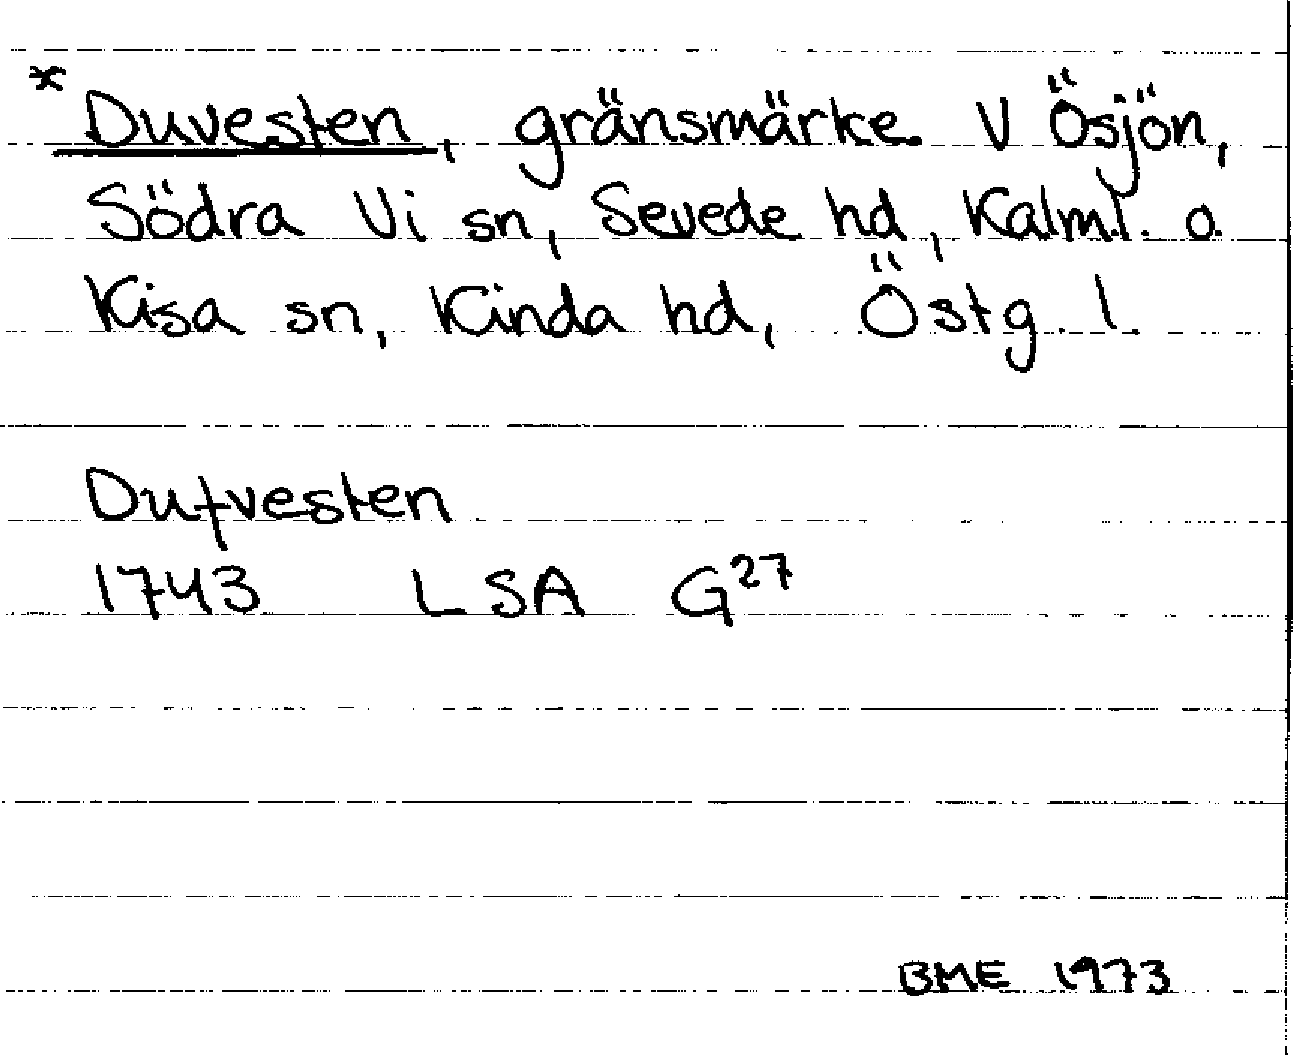 * Duvesten, gränsmärke V Ösjön,
Södra Vi sn, Sevede hd, Kalm.l. o.
Kisa sn, Kinda hd, Östg. l.
Dufvesten
1743 LSA G27
BME 1973